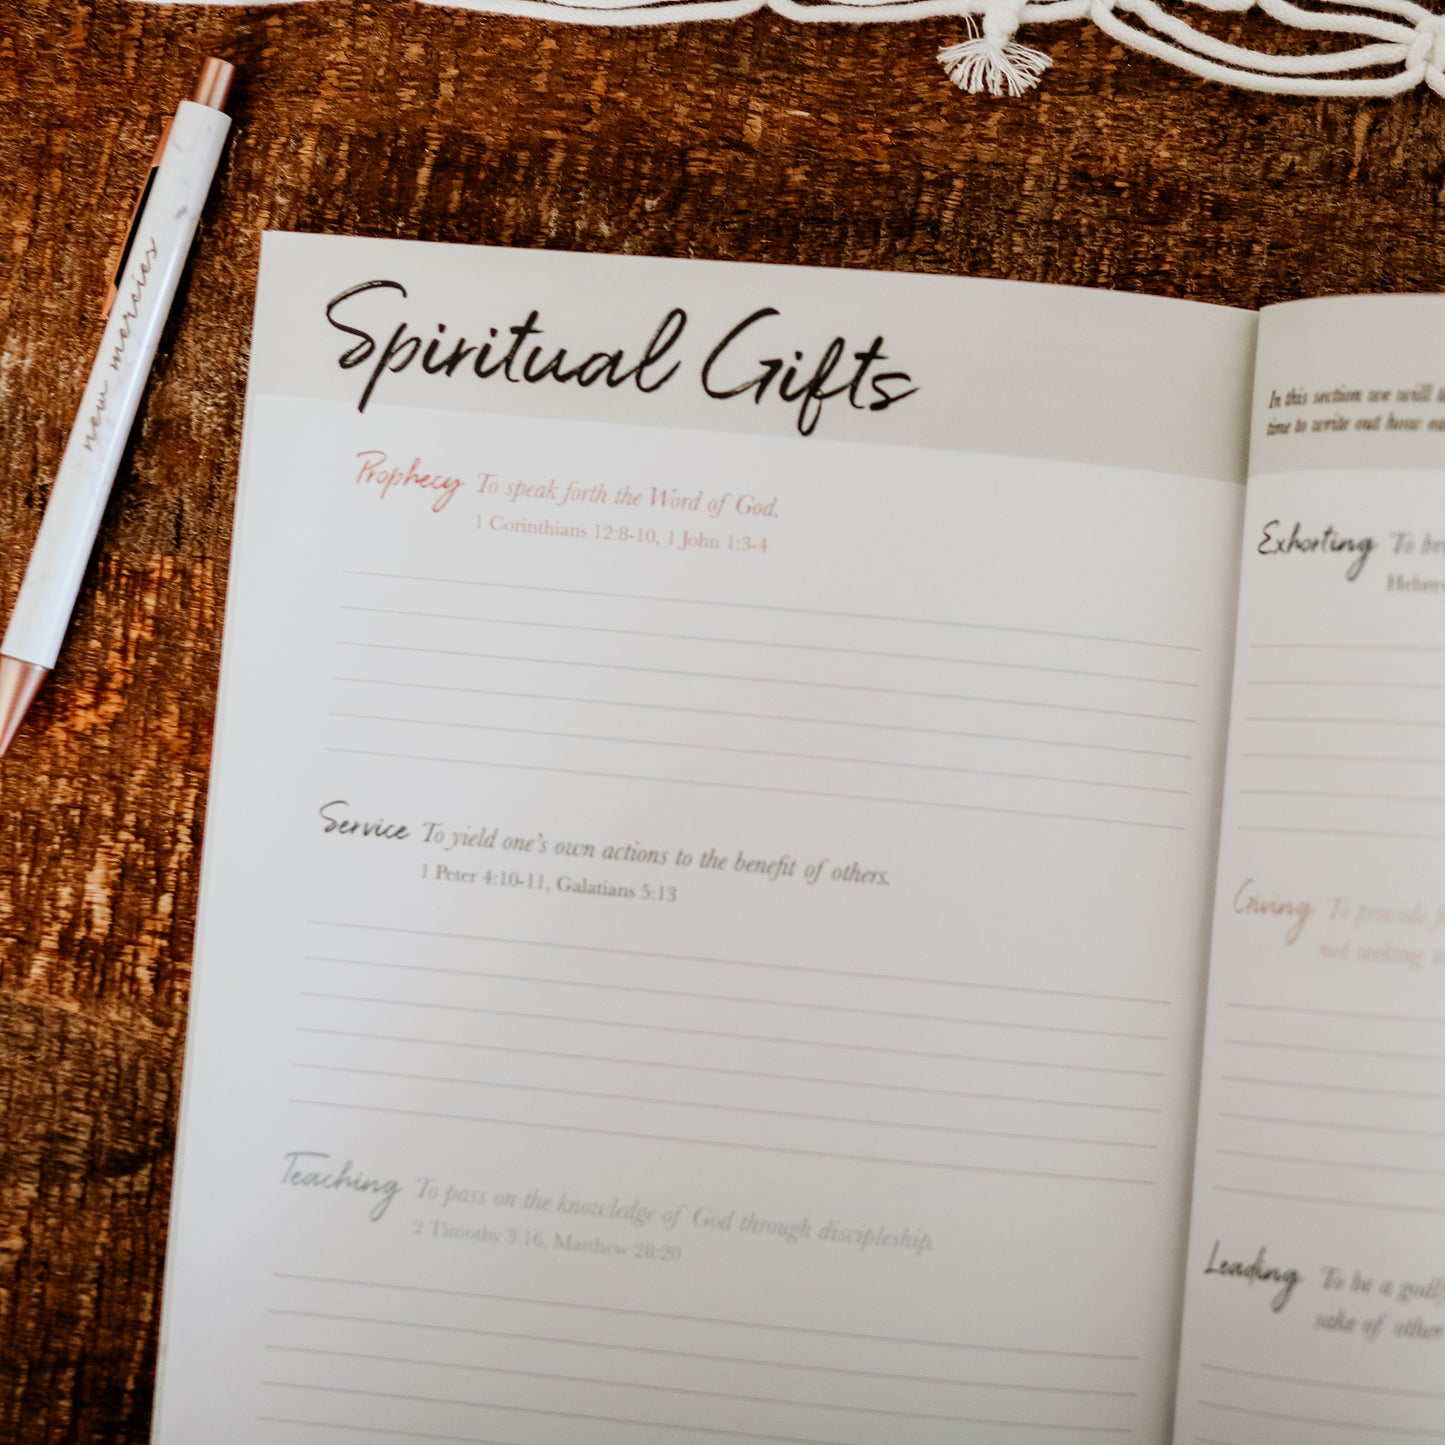 new mercies
Spiritual Gifts
Prophecy To speak forth the Word of God.
1 Corinthians 12:8-10, 1 John 1:3-4
Service To yield one's own actions to the benefit of others.
1 Peter 4:10-11, Galatians 5:13
Teaching To pass on the knowledge of God through discipleship.
2 Timothy 3:16, Matthew 28:20
In this section we will
time to write out how
Exhorting To
Giving To provide
not seeking
Leading To be a godly
sake of